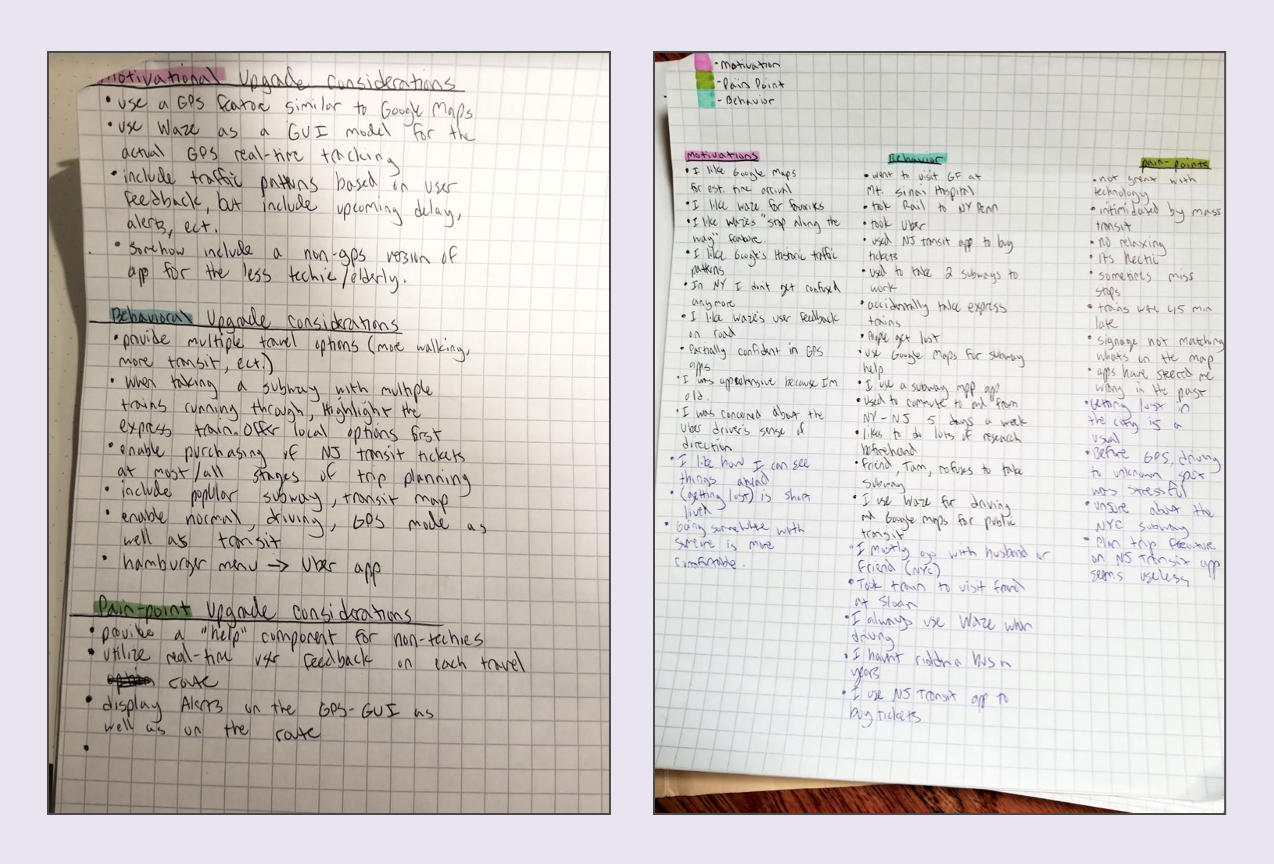 Motivational Upgrade Considerations
• use a GPS feature similar to Google Maps
• use Waze as a GUI model for the
actual GPS real-time tracking
• include traffic patterns based on user
feedback, but include upcoming delay,
alerts, ect.
• somehow include a non-gps version of
app for the less techie/elderly.
Behavioral Upgrade considerations
• provide multiple travel options (more walking,
more transit, ect.)
• when taking a subway with multiple
trains running through, Highlight the
express train. Offer local options first
• enable purchasing of NJ transit tickets
at most/all stages of trip planning
• include popular subway, transit map
• enable normal, driving, GPS mode as
well as transit
• hamburger menu → Uber app
Pain-point Upgrade considerations
• provide a "help" component for non-techies
• utilize real-time user feedback on each travel
route
• display Alerts on the GPS-GUI as
well as on the route
•
- Motivation
- Pain Point
- Behavior
Motivations
• I like Google Maps
for est. time arrival
• I like waze for favorites
• I like Waze's "stop along the
way" feature
• I like Google's Historic traffic
patterns
• In NY I dont get confused
anymore
• I like Waze's user feedback
on road
• Partially confident in GPS
apps
• I was apprehensive because Im
old.
• I was concerned about the
Uber driver's sense of
direction
• I like how I can see
things ahead
• (getting lost) is short
lived
• being somewhere with
someone is more
comfortable.
Behavior
• went to visit GF at
Mt. Sinai Hospital
• took Rail to NY Penn
• took Uber
• used NJ transit app to buy
tickets
• used to take 2 subways to
work
• accidentally take express
trains
• People get lost
• use Google Maps for subway
help
• I use a subway map app
• used to commute to and from
NY-NJ 5 days a week
• likes to do lots of research
beforehand
• Friend, Tam, refuses to take
subway
• I use Waze for driving
and Google maps for public
transit
• I mostly go with husband or
friend (NYC)
• Took train to visit friend
at Sloan
• I always use Waze when
driving
• I havnt ridden a bus in
years
• I use NJ Transit app to
buy tickets
pain-points
• not great with
technology
• intimidated by mass
transit
• no relaxing
• its hectic
• sometimes miss
stops
• trains were 45 min
late
• signage not matching
whats on the map
• apps have steered me
wrong in the past
• Getting lost in
the city is a
usual
• Before GPS, driving
to unknown spot
was stressful
• unsure about the
NYC subway
• Plan trip feature
on NJ Transit app
seems useless